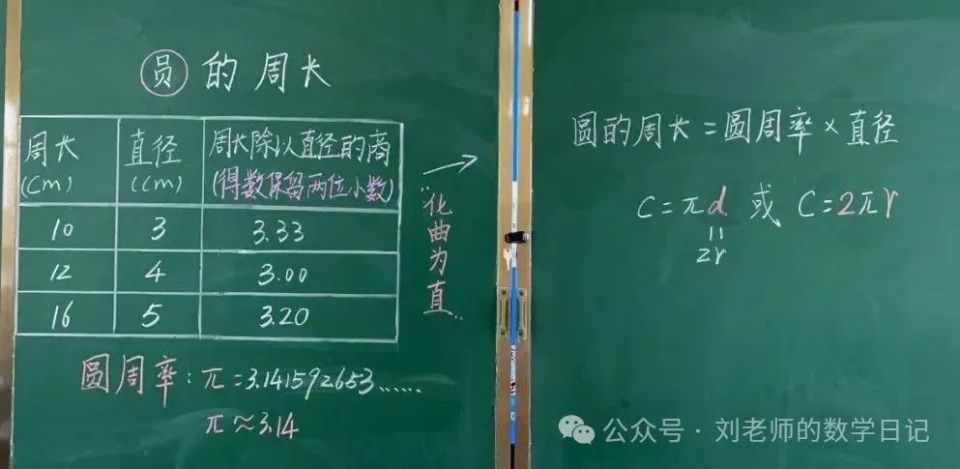 圆的周长
周长(Cm) 直径(Cm) 周长除以直径的商(得数保留两位小数)
10 3 3.33
12 4 3.00
16 5 3.20
圆周率：π=3.141592653......
π≈3.14
"化曲为直"
圆的周长=圆周率×直径
C=πd 或 C=2πr
=
2r
公众号·刘老师的数学日记